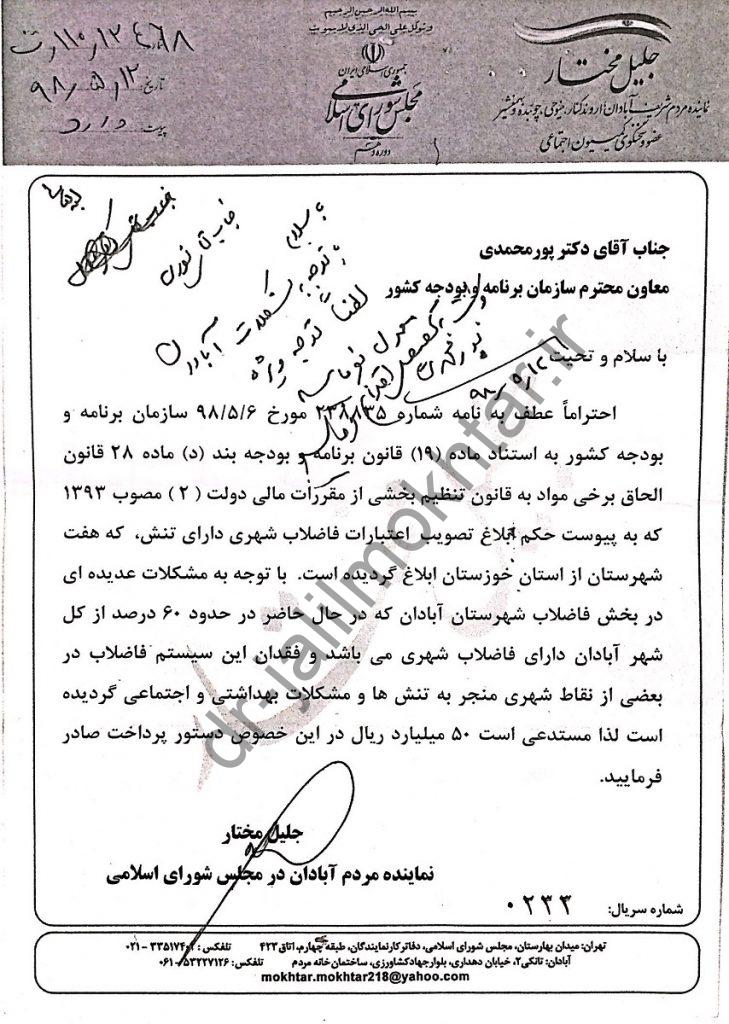 بسم الله الرحمن الرحیم
و توکل علی الحی الذی لا یموت
جمهوری اسلامی ایران
مجلس شورای اسلامی
دوره دهم
جلیل مختار
نماینده مردم شریف آبادان، اروندکنار، منیوحی، چوئبده و بهمنشیر
عضو و سخنگوی کمیسیون اجتماعی
تاریخ: ۹۸/۵/۱۲
پیوست: دارد
جناب آقای دکتر پورمحمدی
معاون محترم سازمان برنامه و بودجه کشور
با سلام و تحیت
احتراماً عطف به نامه شماره ۲۳۸۸۳۵ مورخ ۹۸/۵/۶ سازمان برنامه و
بودجه کشور به استناد ماده (۱۹) قانون برنامه و بودجه بند (د) ماده ۲۸ قانون
الحاق برخی مواد به قانون تنظیم بخشی از مقررات مالی دولت ( ۲ ) مصوب ۱۳۹۳
که به پیوست حکم ابلاغ تصویب اعتبارات فاضلاب شهری دارای تنش، که هفت
شهرستان از استان خوزستان ابلاغ گردیده است. با توجه به مشکلات عدیده ای
در بخش فاضلاب شهرستان آبادان که در حال حاضر در حدود ۶۰ درصد از کل
شهر آبادان دارای فاضلاب شهری می باشد و فقدان این سیستم فاضلاب در
بعضی از نقاط شهری منجر به تنش ها و مشکلات بهداشتی و اجتماعی گردیده
است لذا مستدعی است ۵۰ میلیارد ریال در این خصوص دستور پرداخت صادر
فرمایید.
با سلام
با توجه به مشکلات آبادان
لطفاً توجه ویژه
۹۸/۵/۱۲
dr-jalilmokhtar.ir
جلیل مختار
نماینده مردم آبادان در مجلس شورای اسلامی
شماره سریال: ۰۲۳۳
تهران: میدان بهارستان، مجلس شورای اسلامی، دفاتر کار نمایندگان، طبقه چهارم، اتاق ۴۲۳
آبادان: تانکی۲، خیابان دهداری، بلوار جهاد کشاورزی، ساختمان خانه مردم تلفکس: ۵۳۲۲۷۱۲۶-۰۶۱
mokhtar.mokhtar218@yahoo.com